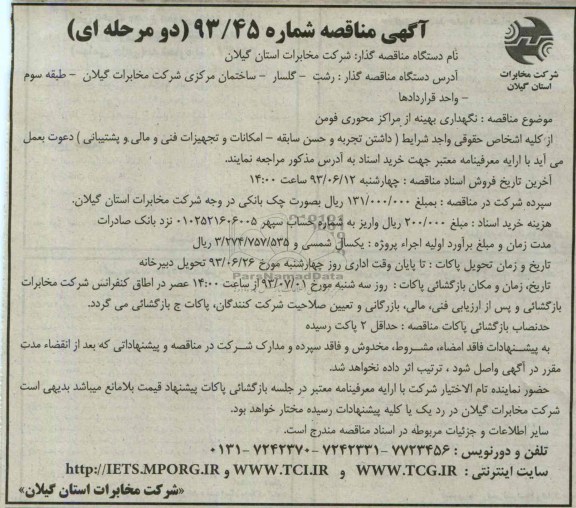 آگهی مناقصه شماره ۹۳/۴۵ (دو مرحله ای)
شرکت مخابرات
استان گیلان
نام دستگاه مناقصه گذار: شرکت مخابرات استان گیلان
آدرس دستگاه مناقصه گذار : رشت - گلسار - ساختمان مرکزی شرکت مخابرات گیلان - طبقه سوم
- واحد قراردادها
موضوع مناقصه : نگهداری بهینه از مراکز محوری فومن
از کلیه اشخاص حقوقی واجد شرایط ( داشتن تجربه و حسن سابقه - امکانات و تجهیزات فنی و مالی و پشتیبانی ) دعوت بعمل
می آید با ارایه معرفینامه معتبر جهت خرید اسناد به آدرس مذکور مراجعه نمایند.
آخرین تاریخ فروش اسناد مناقصه : چهارشنبه ۹۳/۰۶/۱۲ ساعت ۱۴:۰۰
سپرده شرکت در مناقصه : بمبلغ ۱۳۱/۰۰۰/۰۰۰ ریال بصورت چک بانکی در وجه شرکت مخابرات استان گیلان.
هزینه خرید اسناد : مبلغ ۲۰۰/۰۰۰ ریال واریز به شماره حساب سپهر ۰۱۰۲۵۲۱۶۰۶۰۰۵ نزد بانک صادرات
مدت زمان و مبلغ برآورد اولیه اجراء پروژه : یکسال شمسی و ۳/۲۷۴/۷۵۷/۵۳۵ ریال
تاریخ و زمان تحویل پاکات : تا پایان وقت اداری روز چهارشنبه مورخ ۹۳/۰۶/۲۶ تحویل دبیرخانه
تاریخ، زمان و مکان بازگشائی پاکات : روز سه شنبه مورخ ۹۳/۰۷/۰۱ از ساعت ۱۴:۰۰ عصر در اطاق کنفرانس شرکت مخابرات
بازگشائی و پس از ارزیابی فنی، مالی، بازرگانی و تعیین صلاحیت شرکت کنندگان، پاکات ج بازگشائی می گردد.
حدنصاب بازگشائی پاکات مناقصه : حداقل ۲ پاکت رسیده
به پیشنهادات فاقد امضاء، مشروط، مخدوش و فاقد سپرده و مدارک شرکت در مناقصه و پیشنهاداتی که بعد از انقضاء مدت
مقرر در آگهی واصل شود ، ترتیب اثر داده نخواهد شد.
حضور نماینده تام الاختیار شرکت با ارایه معرفینامه معتبر در جلسه بازگشائی پاکات پیشنهاد قیمت بلامانع میباشد بدیهی است
شرکت مخابرات گیلان در رد یک یا کلیه پیشنهادات رسیده مختار خواهد بود.
سایر اطلاعات و جزئیات مربوطه در اسناد مناقصه مندرج است.
تلفن و دورنویس : ۷۷۲۳۴۵۶ - ۷۲۴۲۳۳۱ - ۷۲۴۲۳۷۰ - ۰۱۳۱
سایت اینترنتی : WWW.TCG.IR و WWW.TCI.IR و http://IETS.MPORG.IR
«شرکت مخابرات استان گیلان»
ParsNamadData